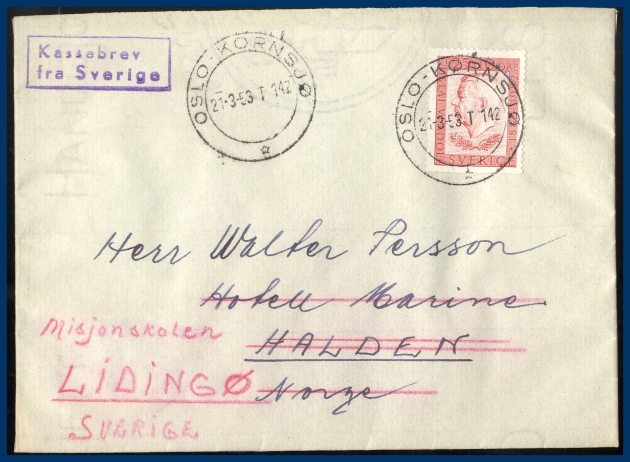 Kassebrev
fra Sverige
OSLO-KORNSJØ
21-3-53 T 142
OSLO-KORNSJØ
21-3-53 T 142
SVERIGE
Herr Walter Persson
Hotell Marine
HALDEN
Norge
Misjonskolen
LIDINGØ
SVERIGE